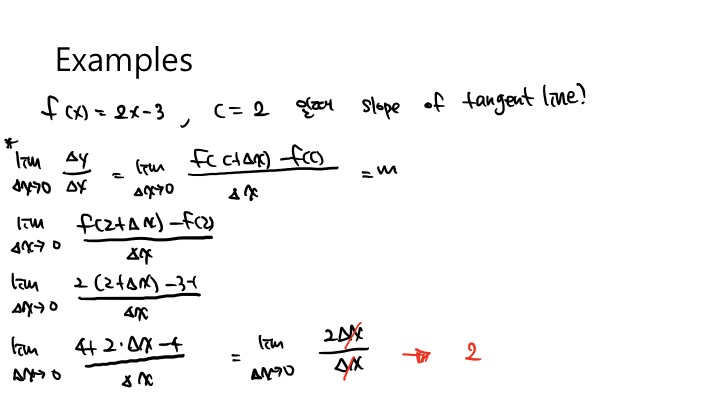 Examples
f(x) = 2x-3 , c = 2 slope of tangent line?
* lim Δx→0 Δy/Δx = lim Δx→0 f(c+Δx) - f(c) / Δx = m
lim Δx→0 f(2+Δx) - f(2) / Δx
lim Δx→0 2(2+Δx) - 3 - 1 / Δx
lim Δx→0 4+2·Δx-4 / Δx = lim Δx→0 2Δx / Δx → 2